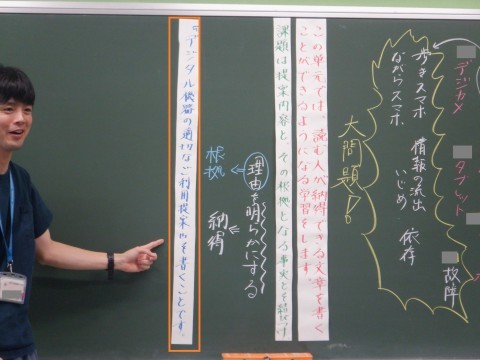 デジカメ
タブレット
故障
歩きスマホ
ながらスマホ
情報の流出
いじめ
依存
大問題!!
この単元では、読む人が納得できる文章を書く
ことができるようになる学習をします。
課題は提案内容と、その根拠となる事実とを結びつけ
理由を明らかにする
納得
根拠
「デジタル機器の適切なご利用提案」を書くことです。